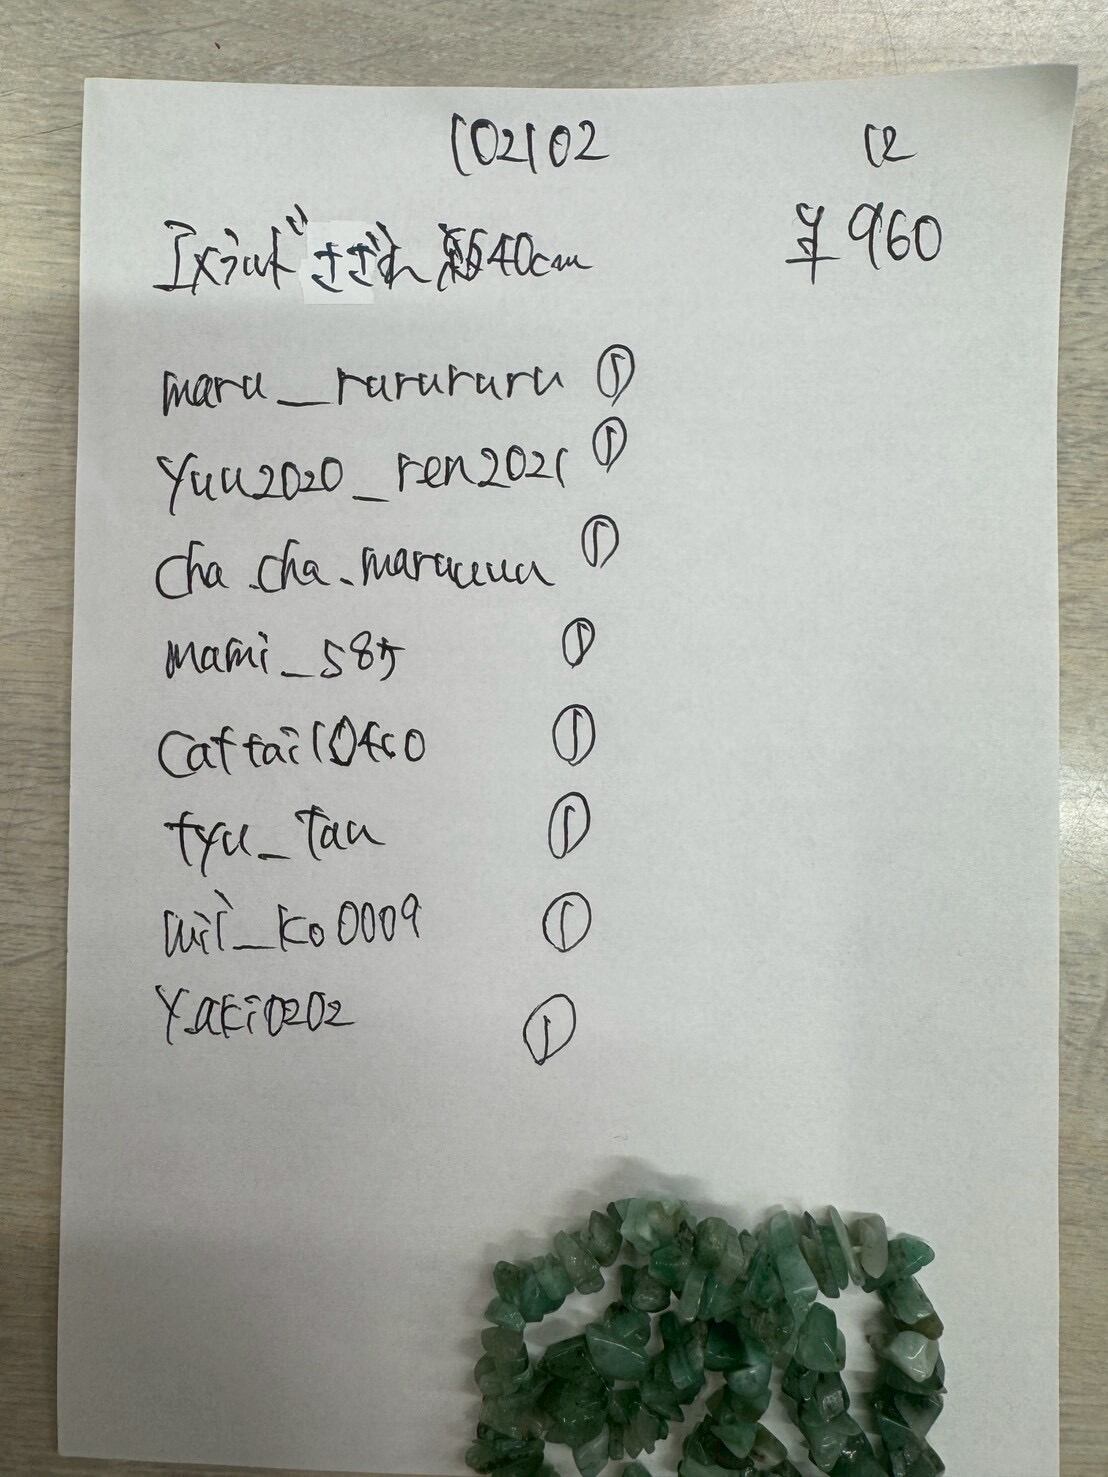 102102 12
エメラルドさざれ 約40cm ¥960
maru_rurururu ①
yuu2020_ren2021 ①
cha.cha.maruuuu ①
mami_585 ①
cattail0400 ①
tyu_tau ①
mii_ko0009 ①
yaki0202 ①